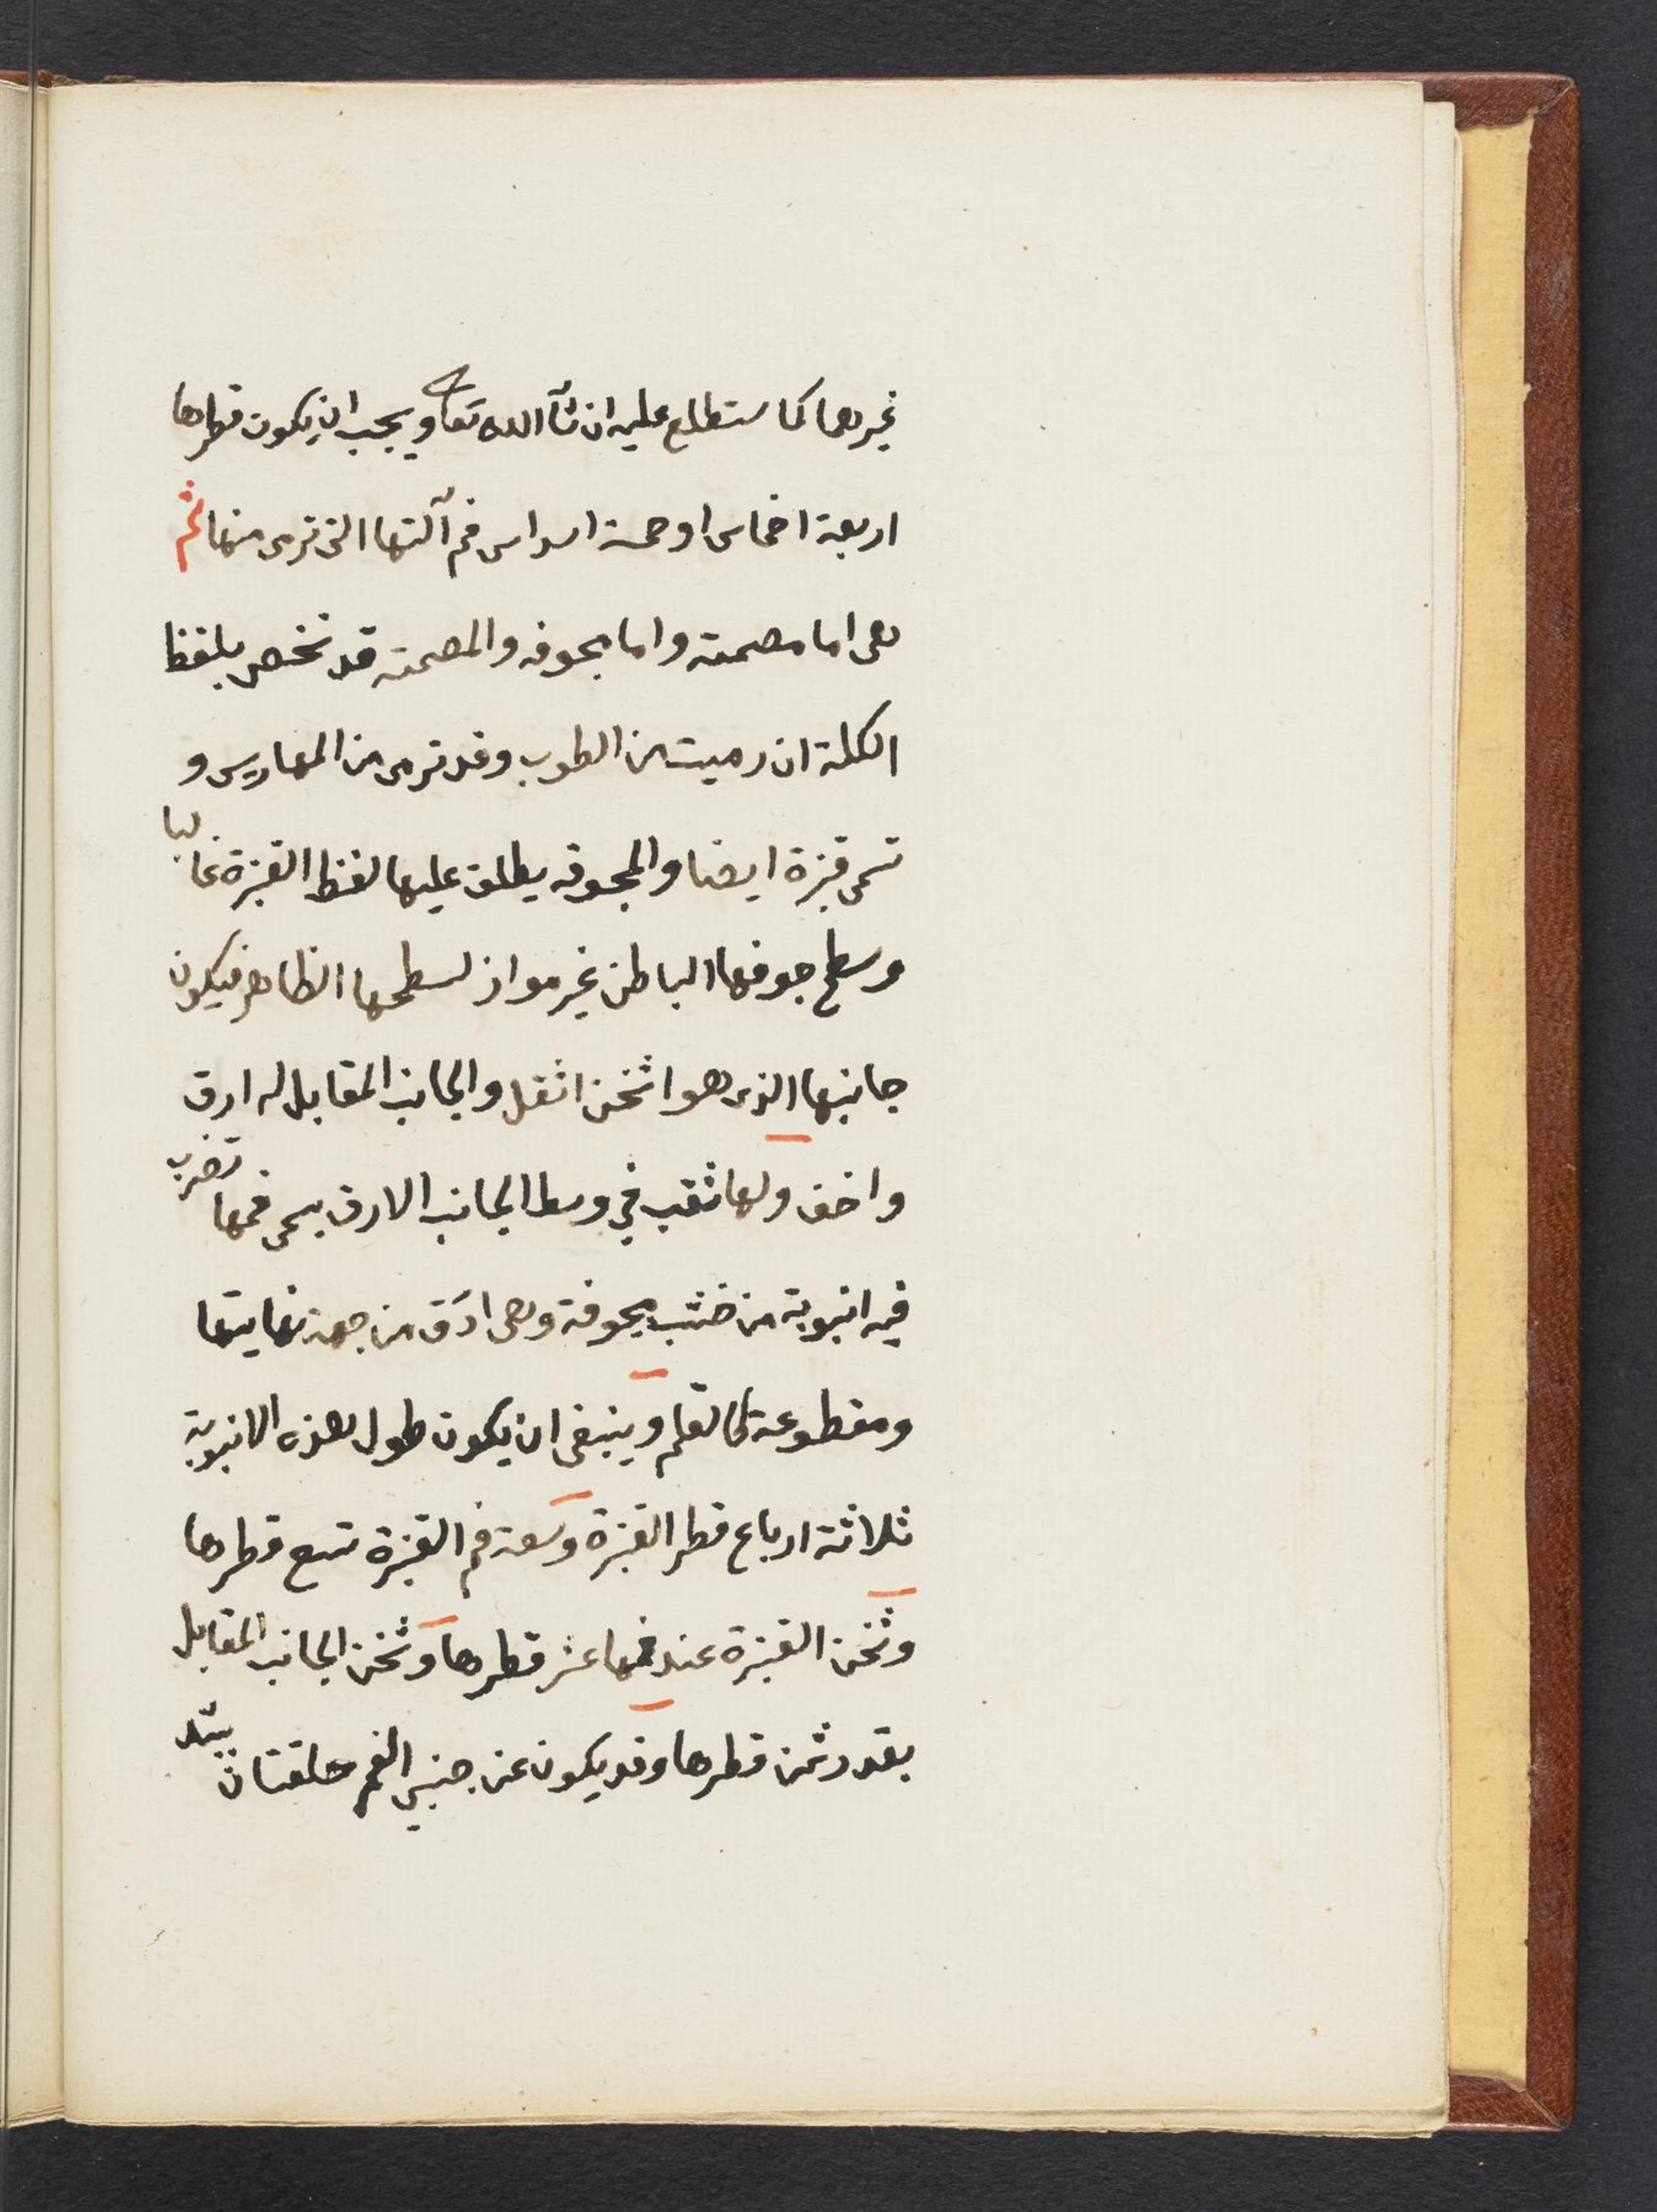 غيرهما كما ستطلع عليه ان شآ الله تعا ويجب ان يكون قطرها
اربعة اخماس او خمسة اسداس فم آلتها التى ترمى منها ثم
هى اما مصمته واما مجوفه والمصمته قد تخص بلفظ
الكلة ان رميت من الطوب وقد ترمى من المهاريس و
تسمى قبزة ايضا والمجوفه يطلق عليها لفظ القبزة غالبا
وسطح جوفها الباطن غير مواز لسطحها الظاهر فيكون
جانبها الذى هو اثخن اثقل والجانب المقابل له ارق
واخف ولها ثقب في وسط الجانب الارق يسمى فمها تضرب
فيه انبوبة من خشب مجوفة وهى ادق من جهة نهايتها
ومقطوعة كالقلم وينبغى ان يكون طول هذه الانبوبة
ثلاثة ارباع قطر القبزة وسعة فم القبزة تسع قطرها
وثخن القبزة عند فمها عشر قطرها وثخن الجانب المقابل
بقدر ثمن قطرها وقد يكون عن جنبي الفم حلقتان